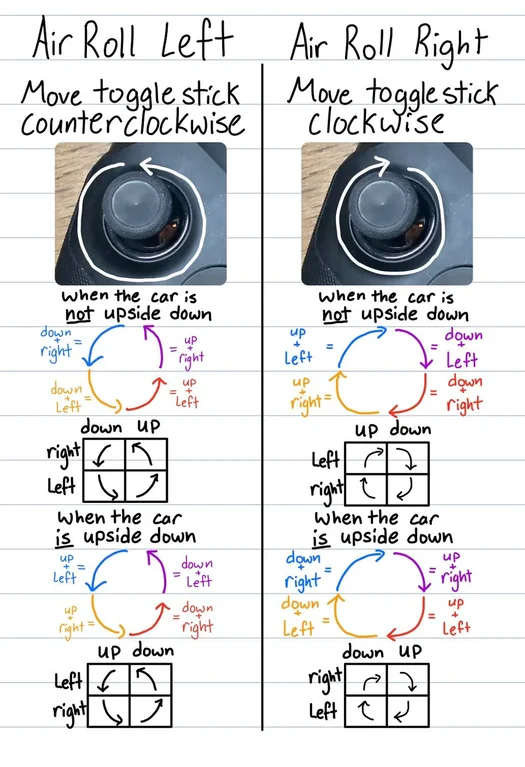 Air Roll Left
Move toggle stick
counterclockwise
when the car is
not upside down
down
+
right =
= up
+
right
down
+
Left =
= up
+
Left
down up
right
Left
when the car
is upside down
up
+
Left =
= down
+
Left
up
+
right =
= down
+
right
up down
Left
right
Air Roll Right
Move toggle stick
clockwise
when the car is
not upside down
up
+
Left =
= down
+
Left
up
+
right =
= down
+
right
up down
Left
right
when the car
is upside down
down
+
right =
= up
+
right
down
+
Left =
= up
+
Left
down up
right
Left